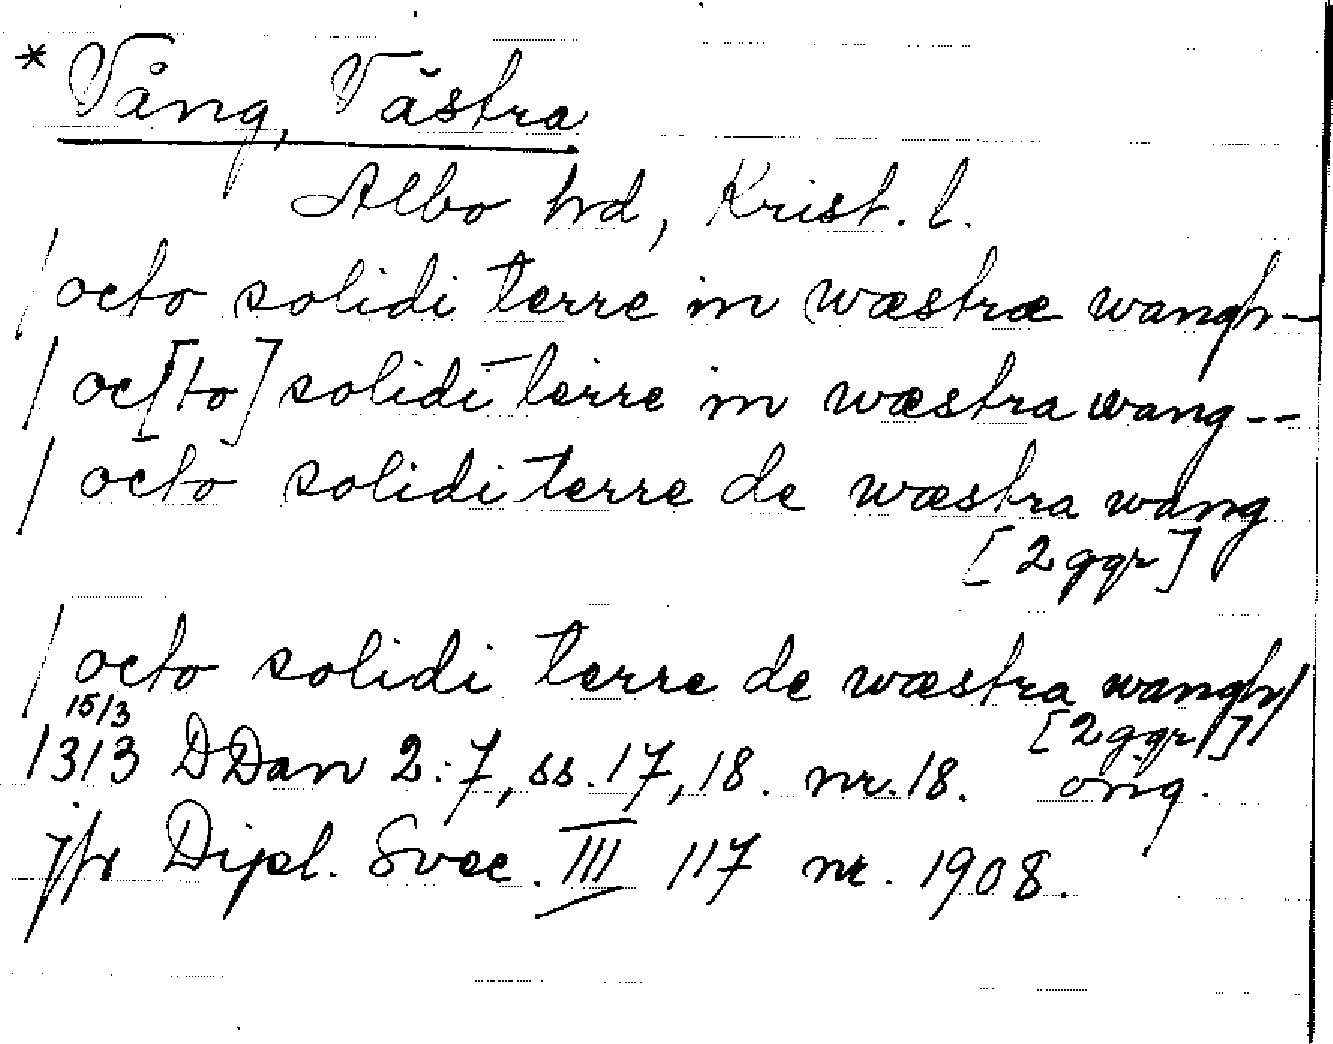 * Vång, Västra
Albo hd, Krist. l.
/ octo solidi terre in wæstræ wangh -
/ oc[to] solidi terre in wæstra wang --
/ octo solidi terre de wæstra wang
[2 ggr]
/ octo solidi terre de wæstra wangh/
[2 ggr/]
15/3
1313 DDan 2:7, ss. 17, 18. nr. 18. orig.
jfr Dipl. Svec. III 117 nr. 1908.